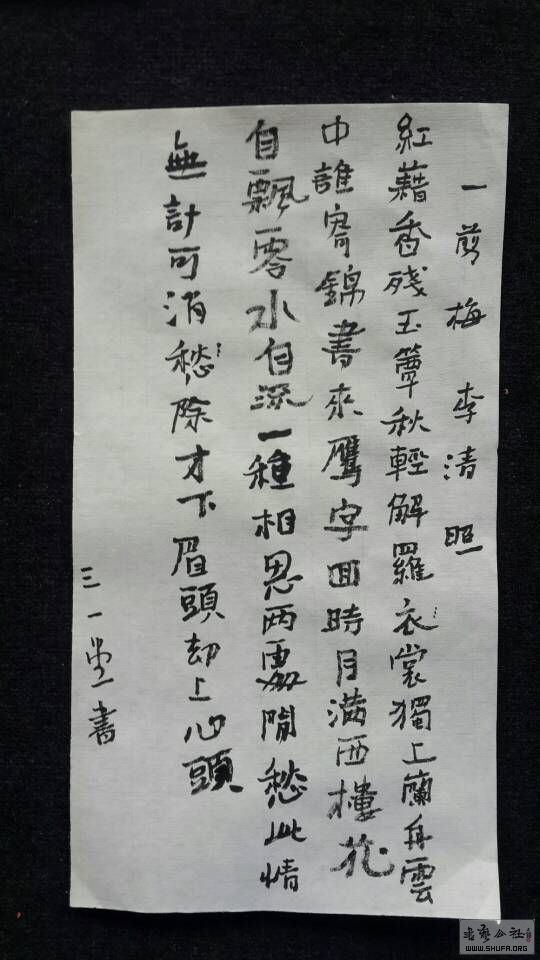 一剪梅 李清照
紅藕香残玉簟秋輕解羅衣裳獨上蘭舟雲
中誰寄錦書來鴈字回時月滿西樓花
自飄零水自流一種相思兩處閒愁此情
無計可消愁除才下眉頭却上心頭
三一堂書
書藝公社
WWW.SHUFA.ORG